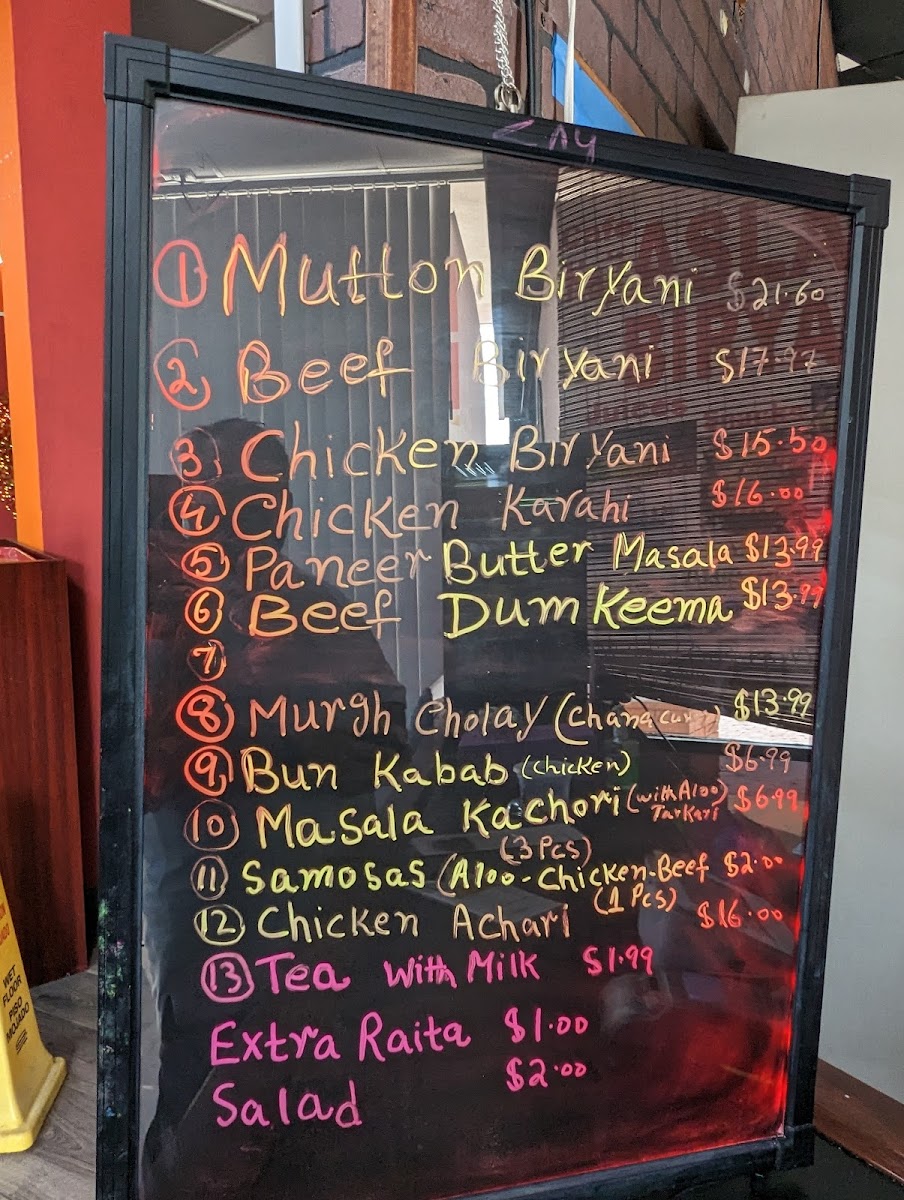 ① Mutton Biryani $21.60
② Beef Biryani $17.97
③ Chicken Biryani $15.50
④ Chicken Karahi $16.00
⑤ Paneer Butter Masala $13.99
⑥ Beef Dum Keema $13.99
⑦
⑧ Murgh Cholay (chana curry) $13.99
⑨ Bun Kabab (chicken) $6.99
⑩ Masala Kachori (with Aloo Tarkari) $6.99
(3 Pcs)
⑪ Samosas (Aloo-Chicken-Beef $2.00
(1 Pcs)
⑫ Chicken Achari $16.00
⑬ Tea with Milk $1.99
Extra Raita $1.00
Salad $2.00
WET
FLOOR
PISO
MOJADO